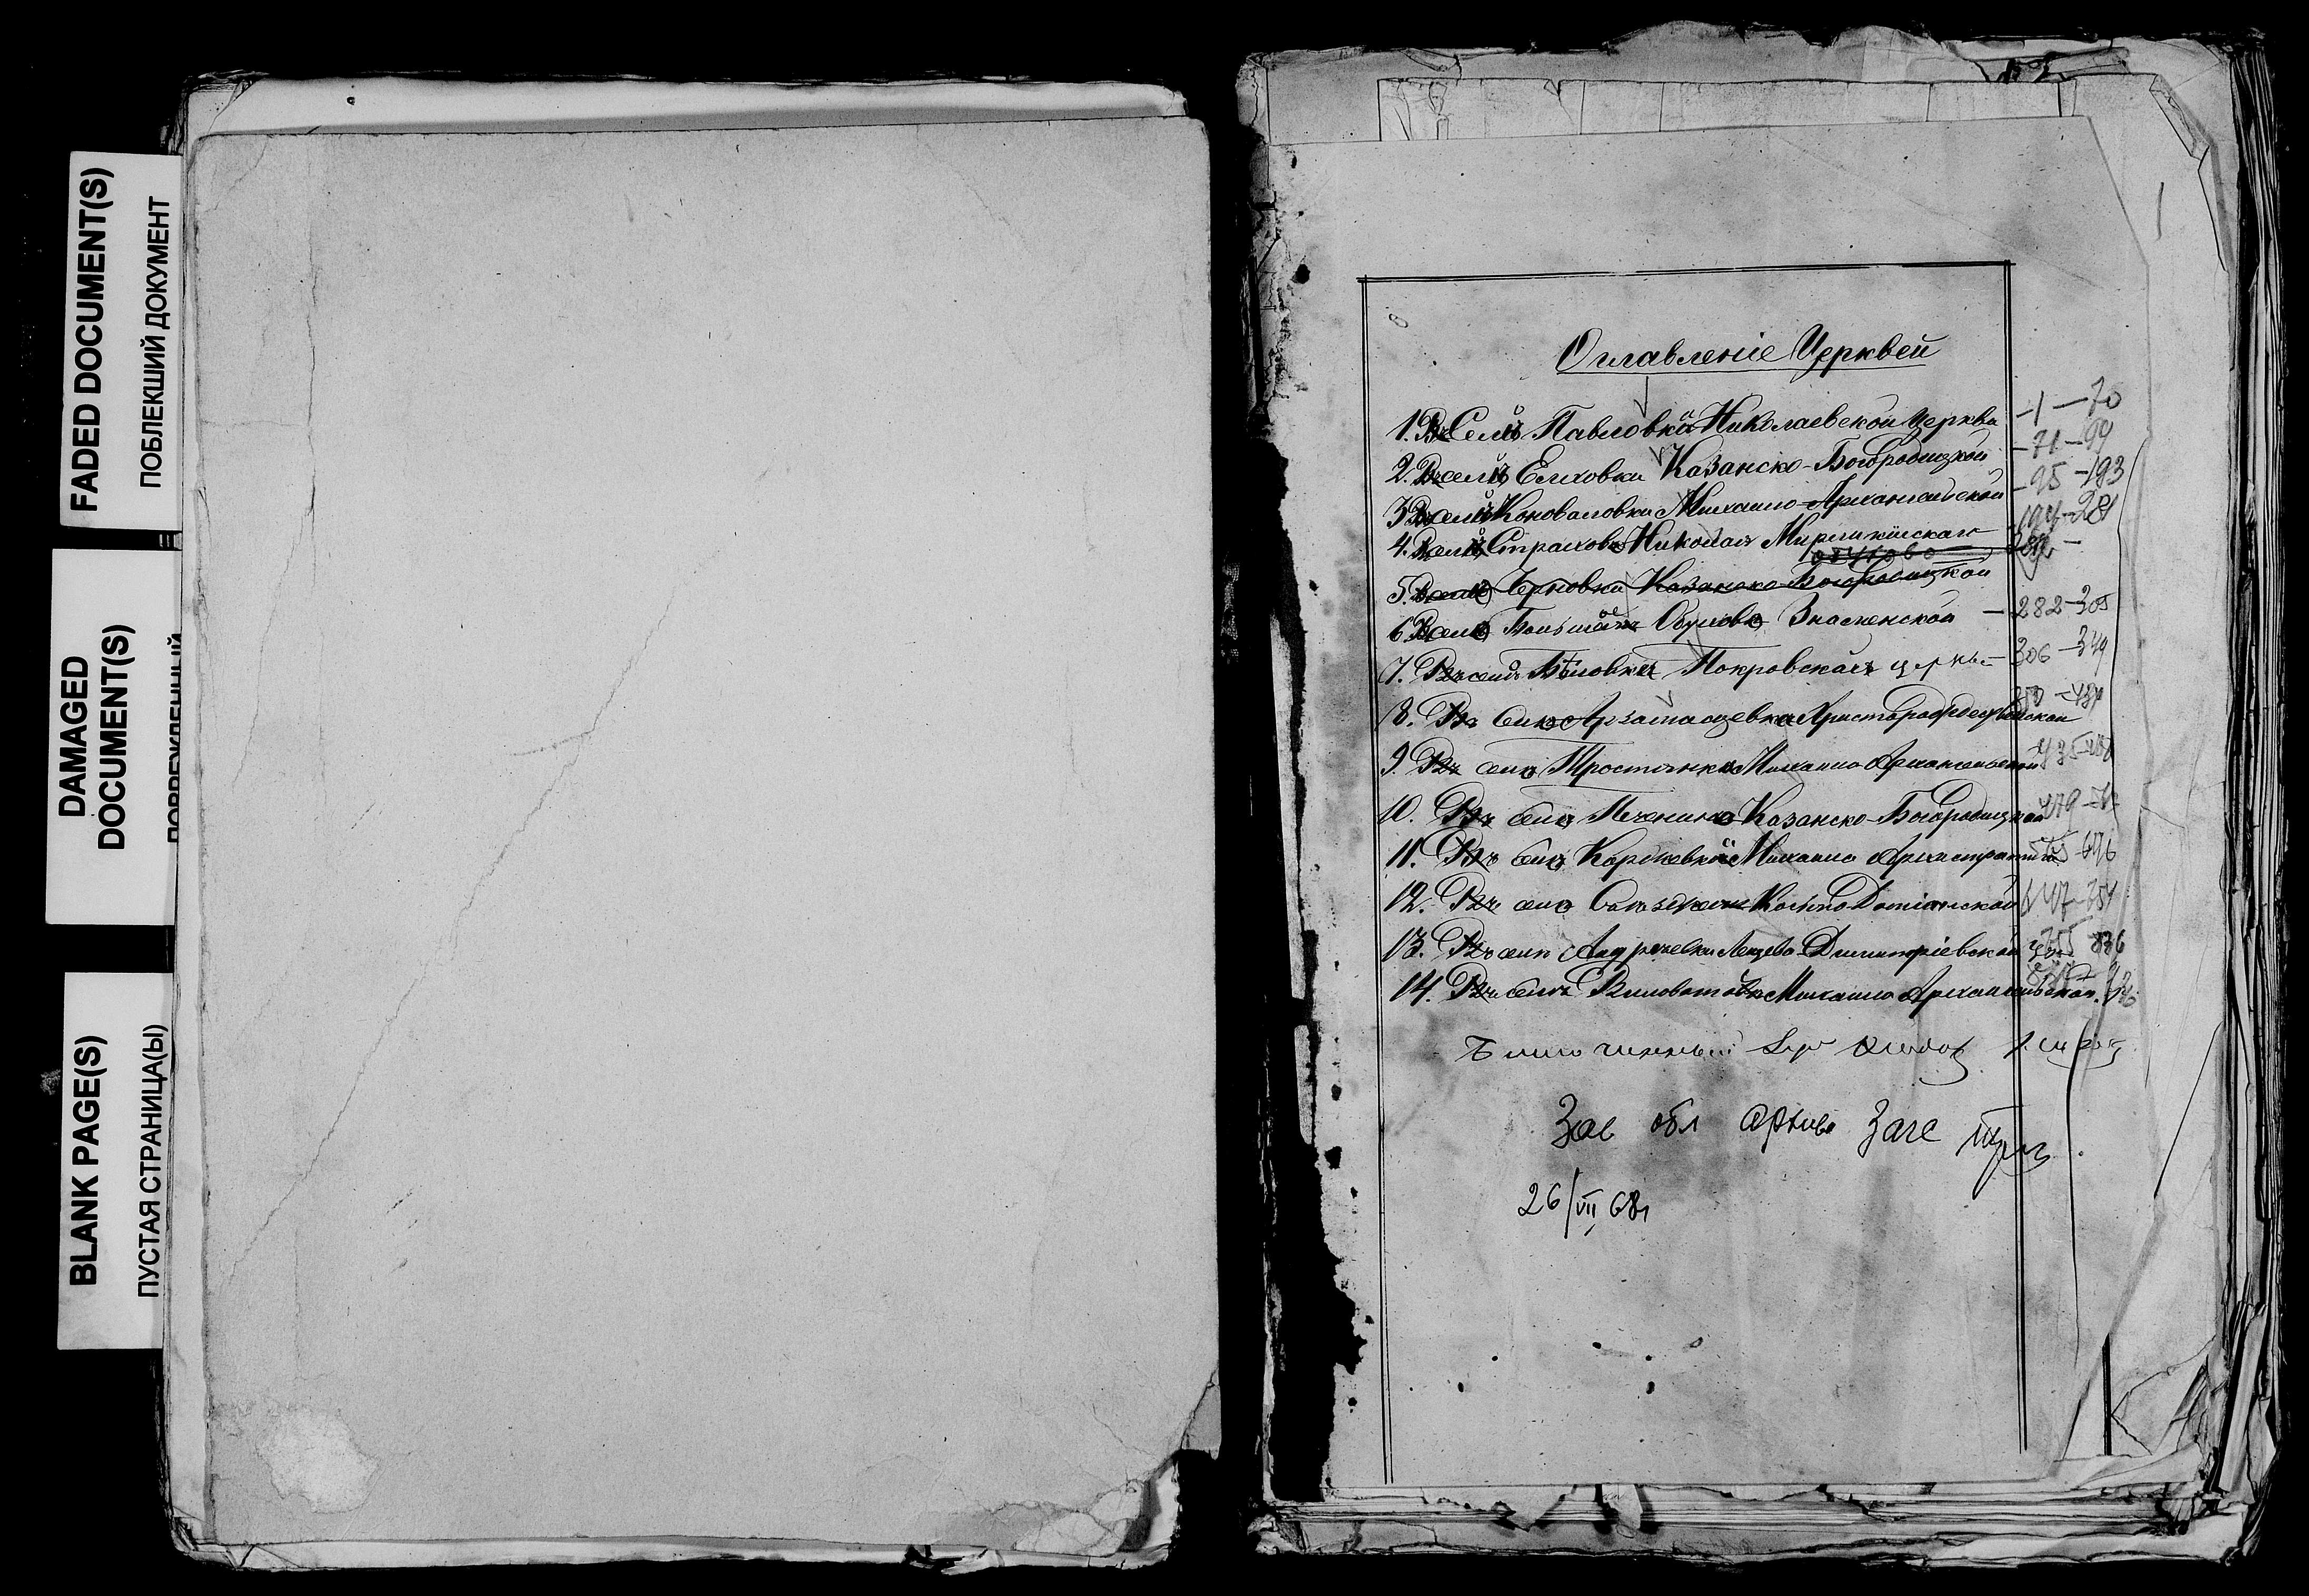 FADED DOCUMENT(S)
ПОБЛЕКШИЙ ДОКУМЕНТ
DAMAGED
DOCUMENT(S)
ПОВРЕЖДЕННЫЙ
BLANK PAGE(S)
ПУСТАЯ СТРАНИЦА(Ы)
Оглавленіе Церквей
1. Въ Селѣ Павловкѣ Николаевской Церкви -1-70
2. Въ селѣ Елховки Казанско-Богородицкой -71-94
3. Въ селѣ Коноваловки Михаило-Архангельской -95-193
4. Въ селѣ Страхово Николая Мирликійская 194-281
отсутсво
5. Въ селѣ Черновки Казанско-Богородицкой
6. Въ селѣ Большой Обшово Знаменской - 282-305
7. Въ селѣ Бѣловкѣ Покровская церкв - 306-349
8. Въ селѣ Арзамасцевка Христорождественской
9. Въ селѣ Тростянка Михаило Архангельской
10. Въ селѣ Печенино Казанско-Богородицкой
11. Въ селѣ Корнеевкѣ Михаило Архистратига
12. Въ селѣ Космо-Даміанской
13. Въ селѣ Андреевки Димитріевской 755-836
14. Въ селѣ Виловатовки Михаило Архангельской
Благочинный
Зав обл архива Загс
26/VII 68г